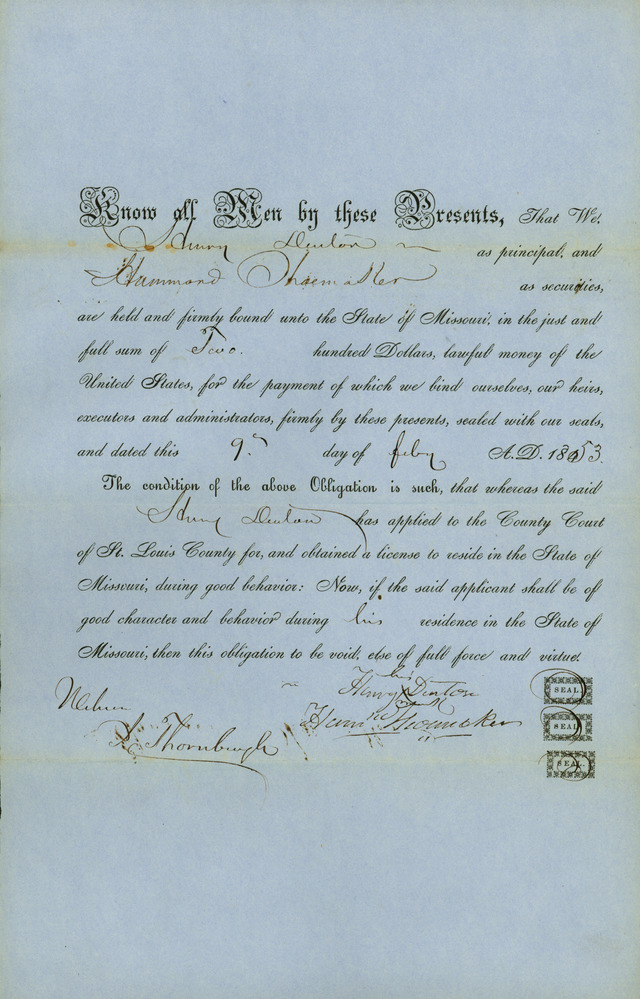 Know all Men by these Presents, That We,
Henry Denton as principal, and
Hammond Shoemaker as securities,
are held and firmly bound unto the State of Missouri, in the just and
full sum of Two hundred Dollars, lawful money of the
United States, for the payment of which we bind ourselves, our heirs,
executors and administrators, firmly by these presents, sealed with our seals,
and dated this 9. day of feby A.D. 1853.
The condition of the above Obligation is such, that whereas the said
Henry Denton has applied to the County Court
of St. Louis County for, and obtained a license to reside in the State of
Missouri, during good behavior: Now, if the said applicant shall be of
good character and behavior during his residence in the State of
Missouri, then this obligation to be void, else of full force and virtue.
his
Henry X Denton SEAL
mk
Shoemaker SEAL
Thornburgh SEAL